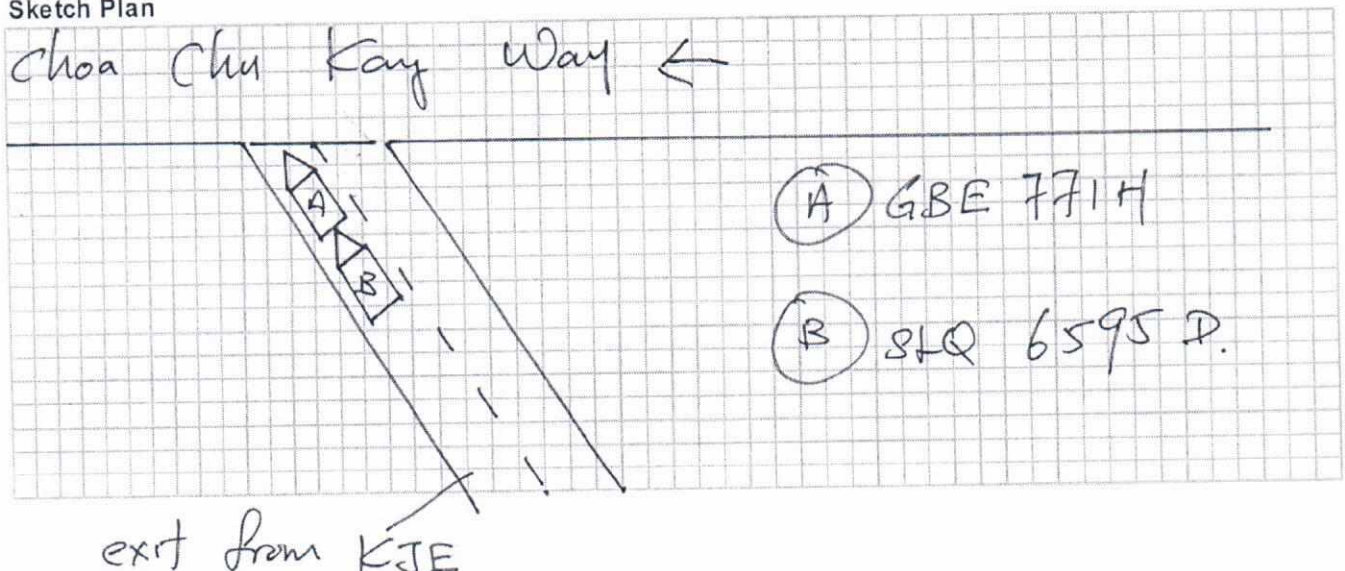 Sketch Plan
Choa Chu Kay Way ←
A
B
A GBE 771H
B SLQ 6595 D.
exit from KJE